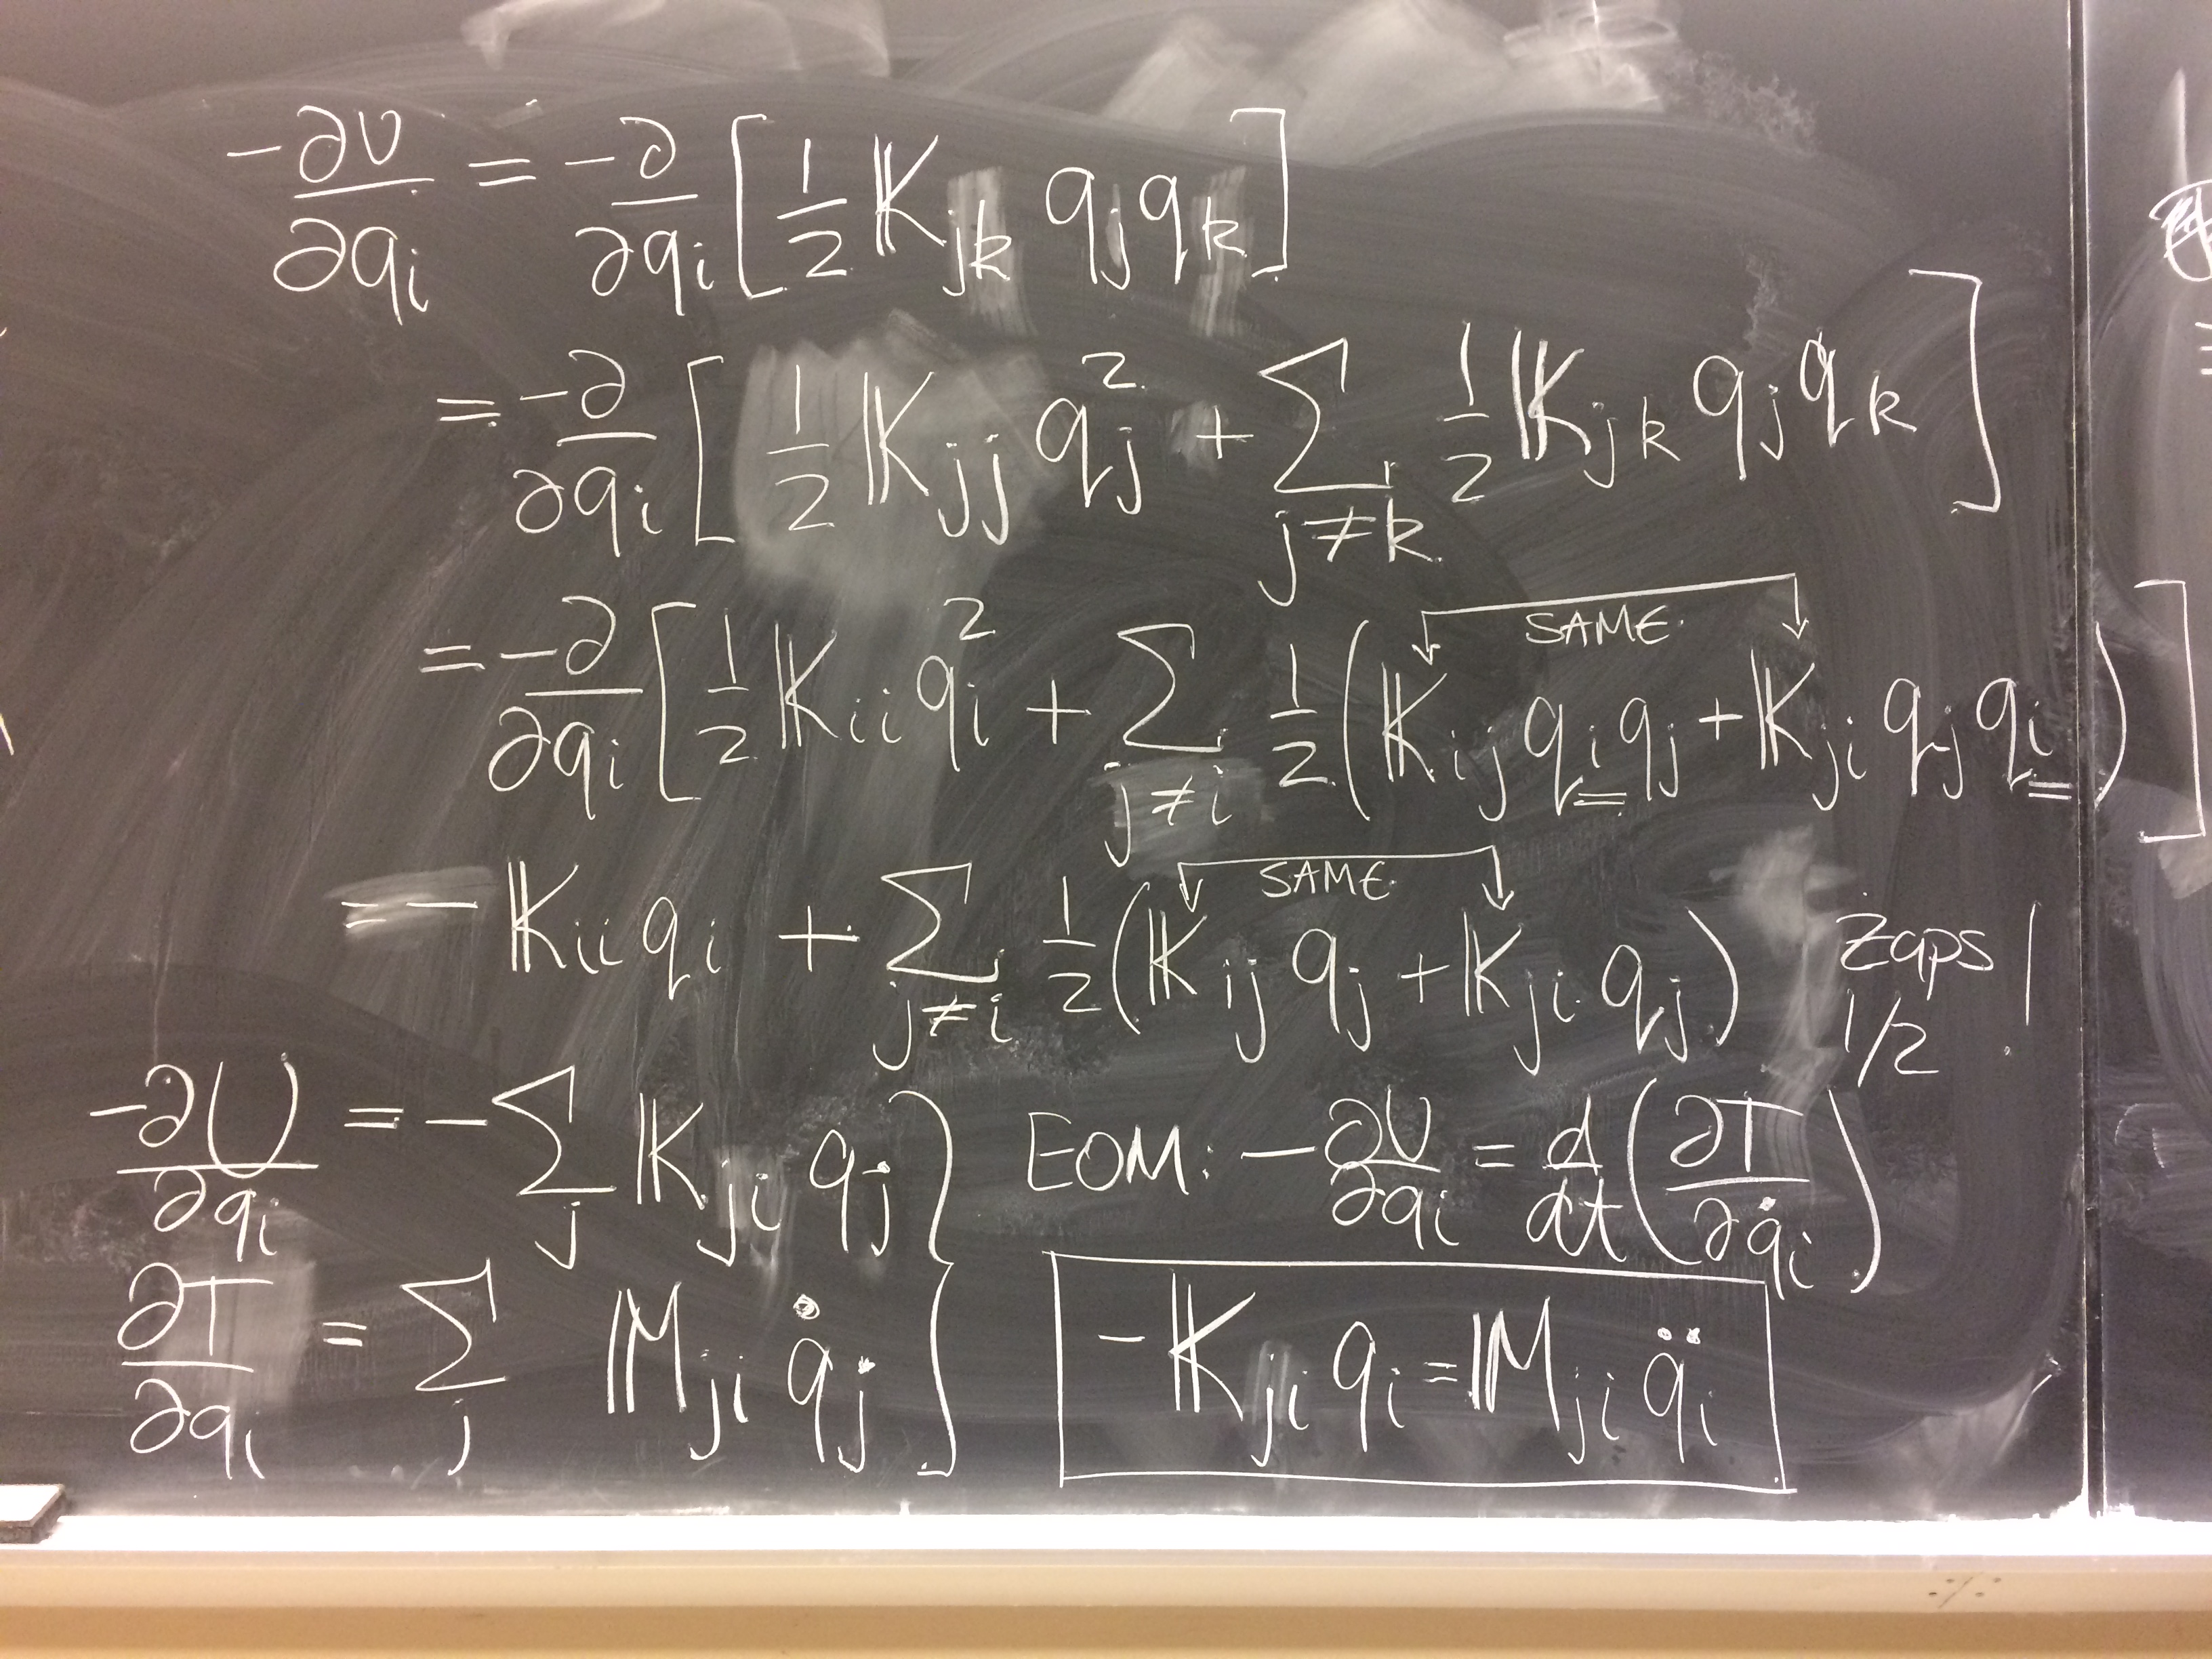 -∂U/∂qᵢ = -∂/∂qᵢ [ 1/2 𝕂ⱼₖ qⱼ qₖ ]
= -∂/∂qᵢ [ 1/2 𝕂ⱼⱼ qⱼ² + ∑_{j≠k} 1/2 𝕂ⱼₖ qⱼ qₖ ]
SAME
= -∂/∂qᵢ [ 1/2 𝕂ᵢᵢ qᵢ² + ∑_{j≠i} 1/2 ( 𝕂ᵢⱼ qᵢ qⱼ + 𝕂ⱼᵢ qⱼ qᵢ ) ]
SAME
= - 𝕂ᵢᵢ qᵢ + ∑_{j≠i} 1/2 ( 𝕂ᵢⱼ qⱼ + 𝕂ⱼᵢ qⱼ ) Zaps 1/2 !
-∂U/∂qᵢ = -∑_j 𝕂ⱼᵢ qⱼ } EOM: -∂U/∂qᵢ = d/dt ( ∂T/∂q̇ᵢ )
∂T/∂qᵢ = ∑_j 𝕄ⱼᵢ q̇ⱼ } -𝕂ⱼᵢ qᵢ = 𝕄ⱼᵢ q̈ᵢ